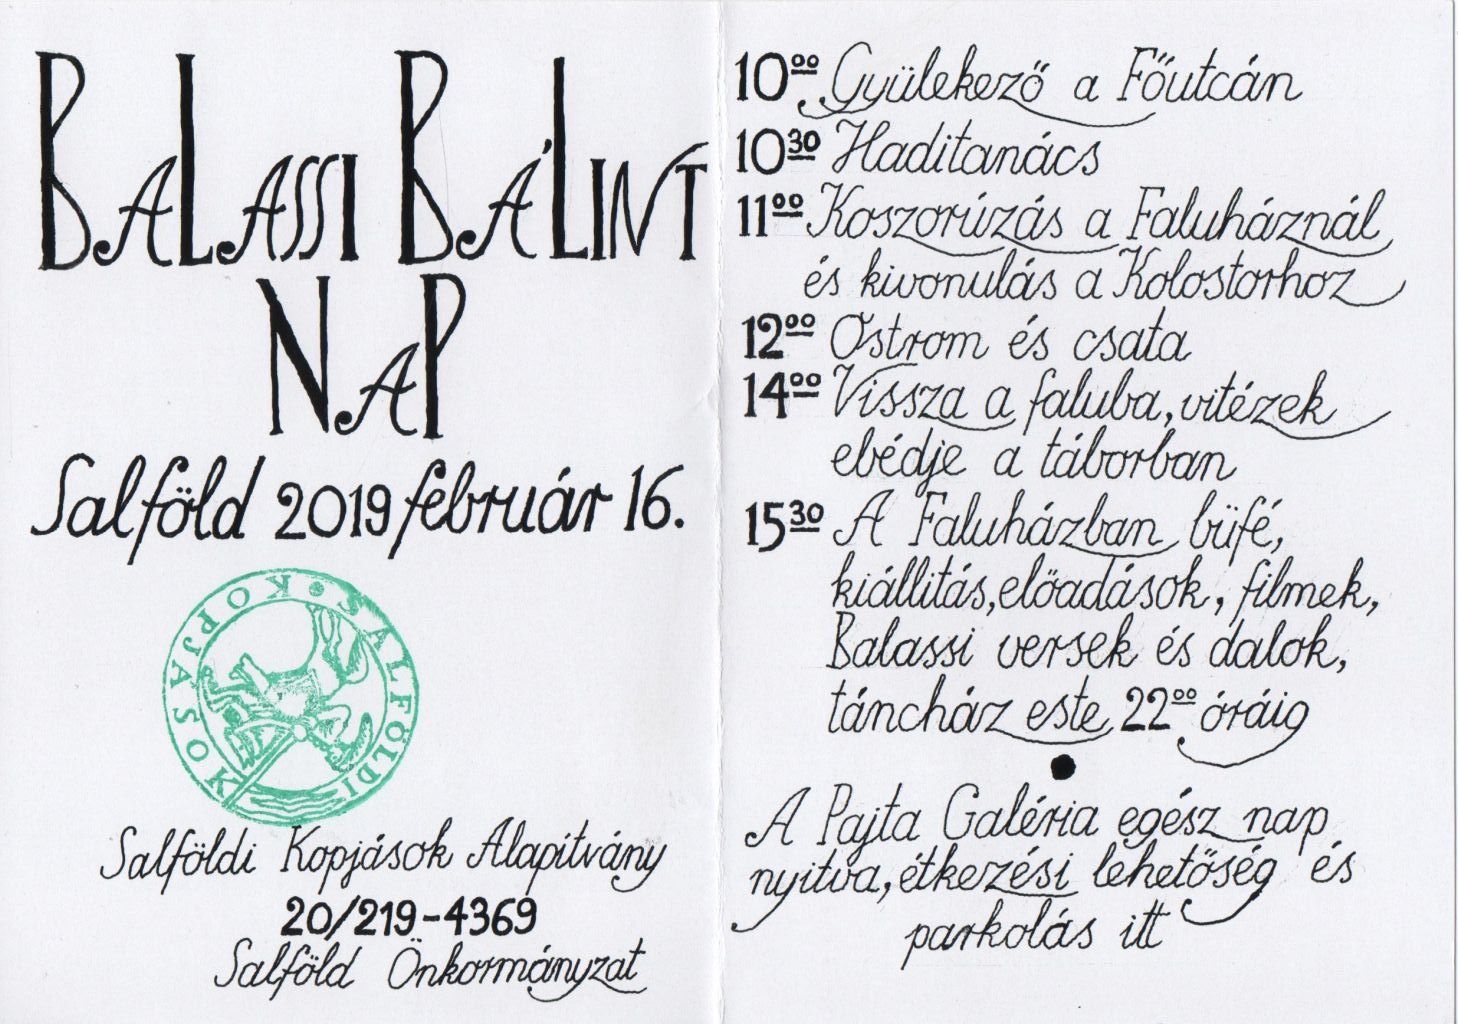 BALASSI BÁLINT
NAP
Salföld 2019 február 16.
SALFÖLDI KOPJÁSOK
Salföldi Kopjások Alapitvány
20/219-4369
Salföld Önkormányzat
10⁰⁰ Gyülekező a Főutcán
10³⁰ Haditanács
11⁰⁰ Koszorúzás a Faluháznál
és kivonulás a Kolostorhoz
12⁰⁰ Ostrom és csata
14⁰⁰ Vissza a faluba, vitézek
ebédje a táborban
15³⁰ A Faluházban büfé,
kiállitás, előadások, filmek,
Balassi versek és dalok,
táncház este 22⁰⁰ óráig
A Pajta Galéria egész nap
nyitva, étkezési lehetőség és
parkolás itt